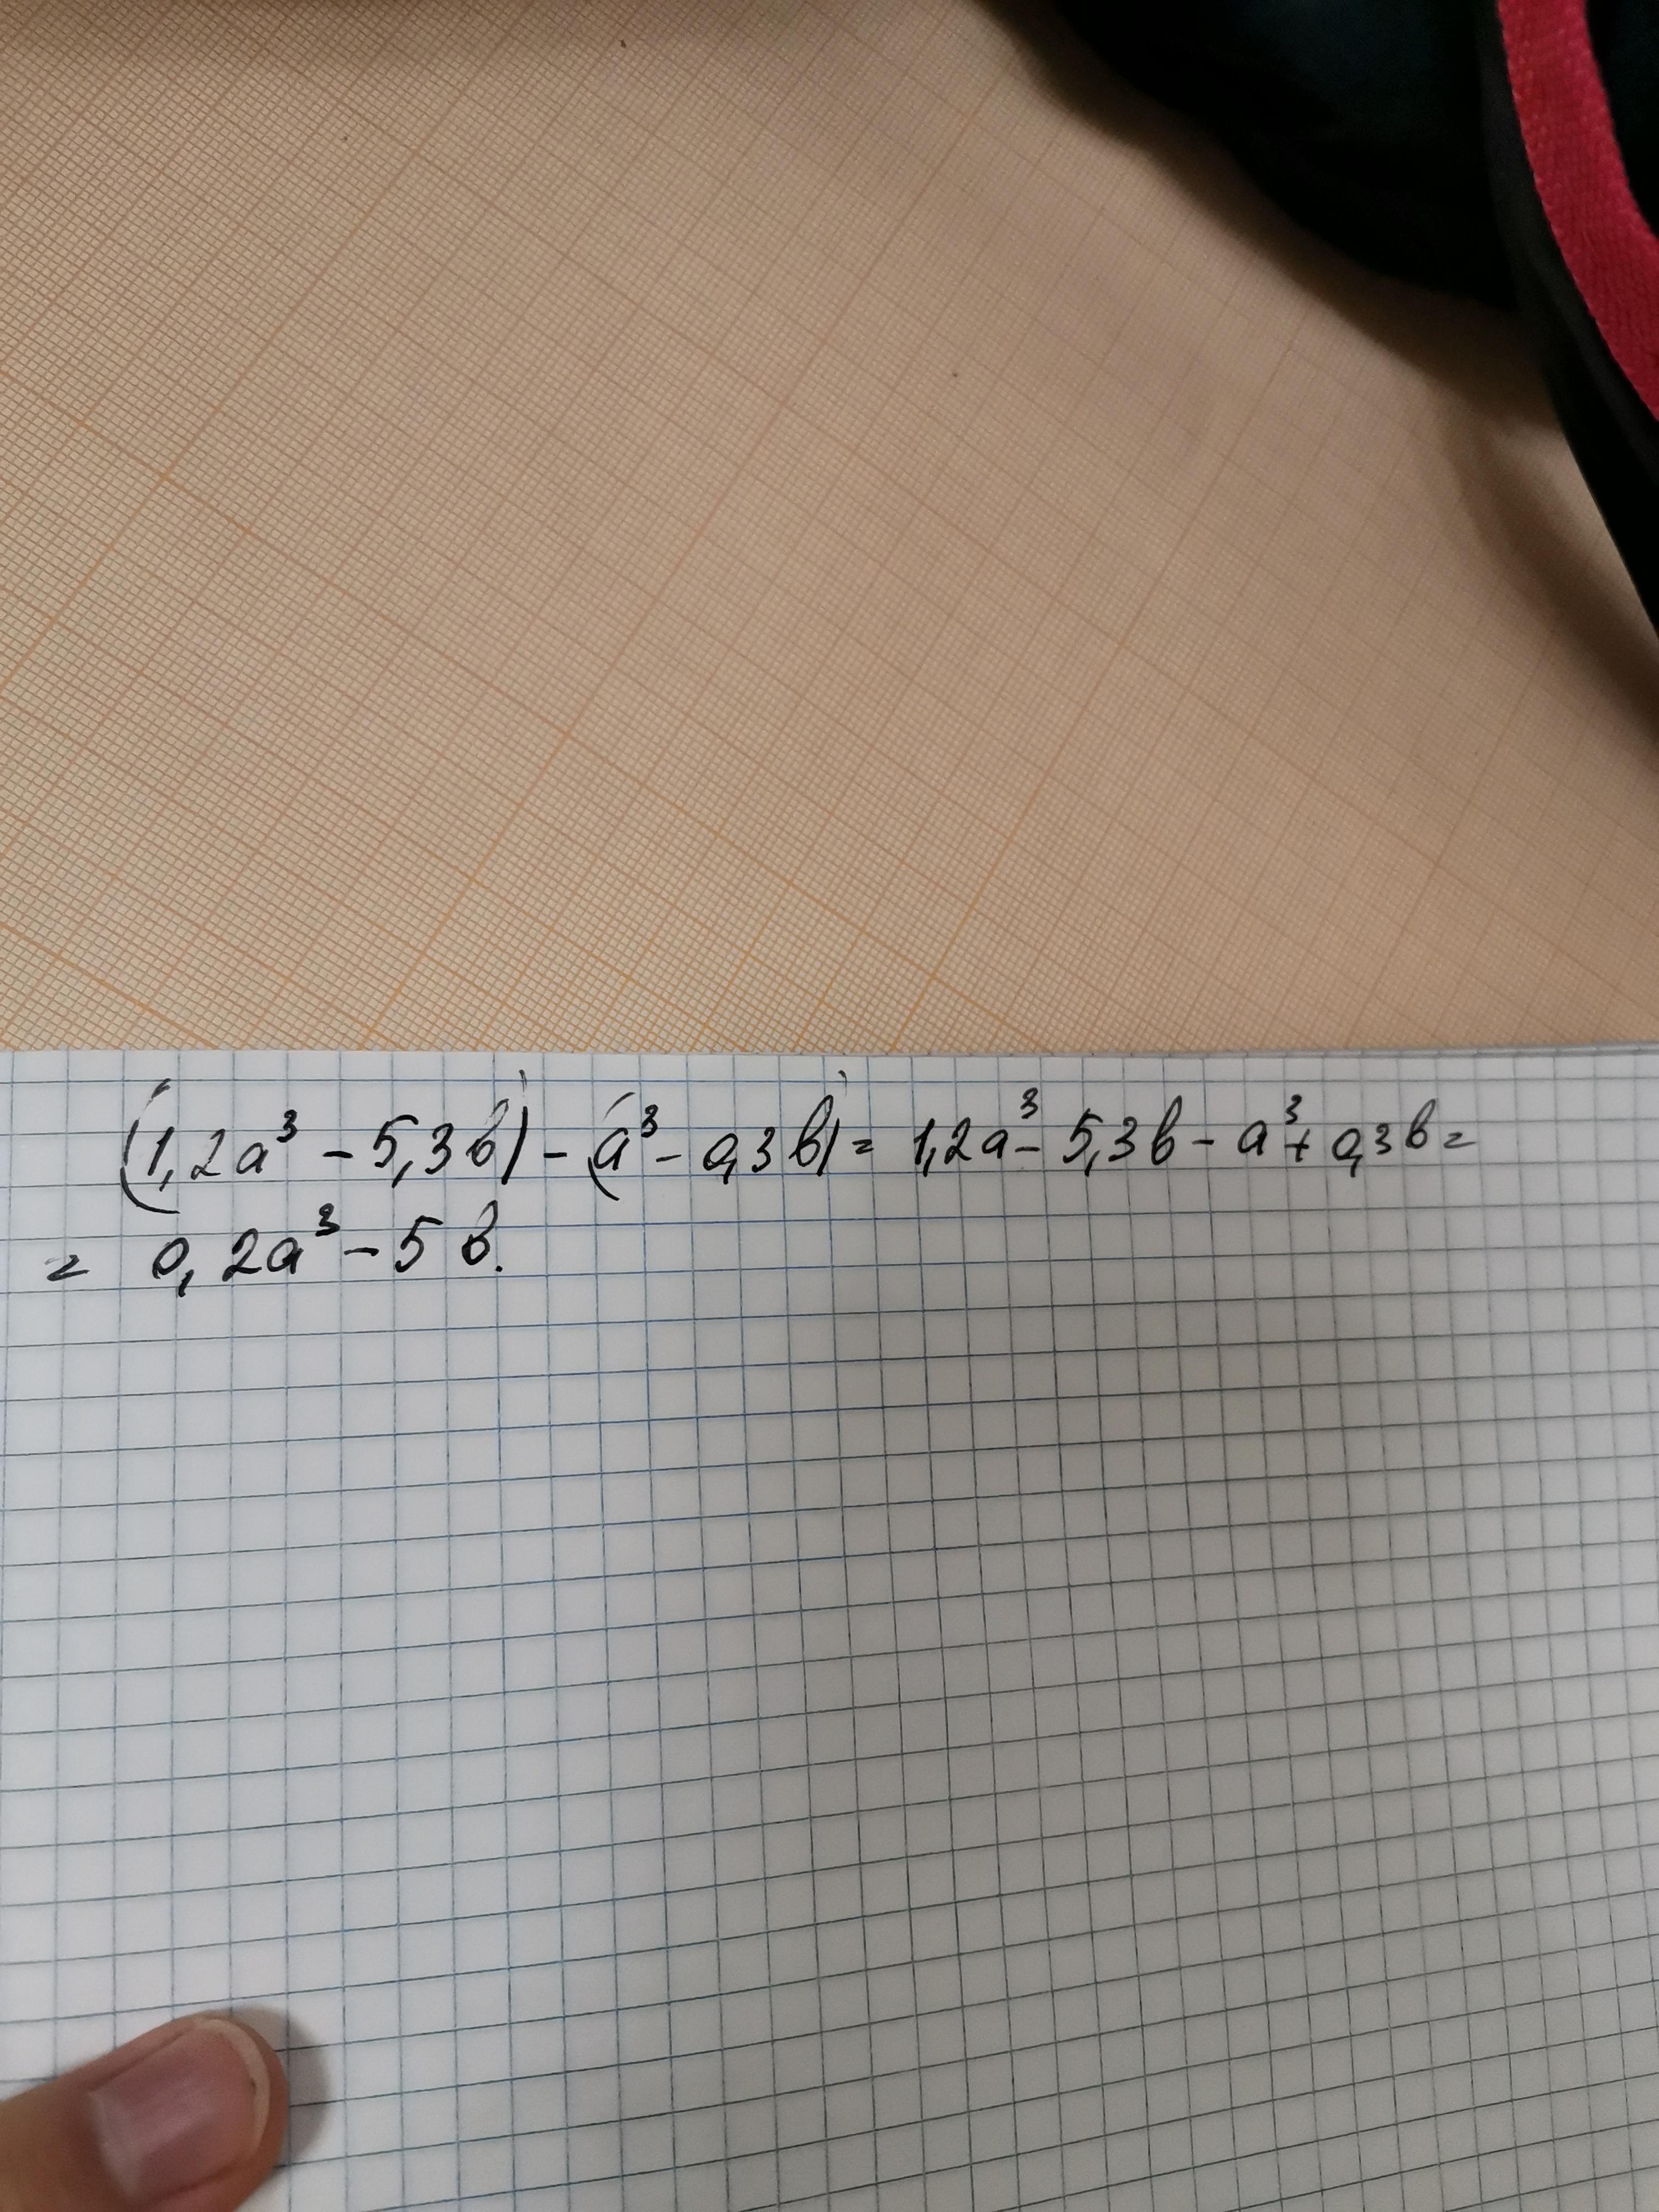 (1,2a³ - 5,3b) - (a³ - 0,3b) = 1,2a³ - 5,3b - a³ + 0,3b =
= 0,2a³ - 5b.